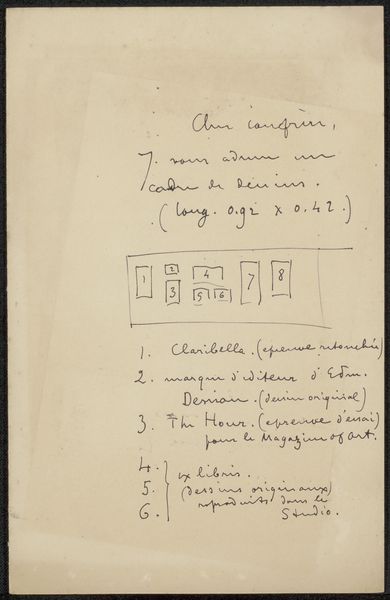 Cher confrère,
J. vous adresse un
cadre de dessins.
(long. 0.92 x 0.42.)
1 2 3 4 5 6 7 8
1. Claribella. (épreuve retouchée)
2. marque d'éditeur d'Edm.
Deman. (dessin original)
3. The Hour. (épreuve d'essai)
pour le Magazine of Art.
4. ex libris.
5. (dessins originaux)
6. reproduits dans le
Studio.